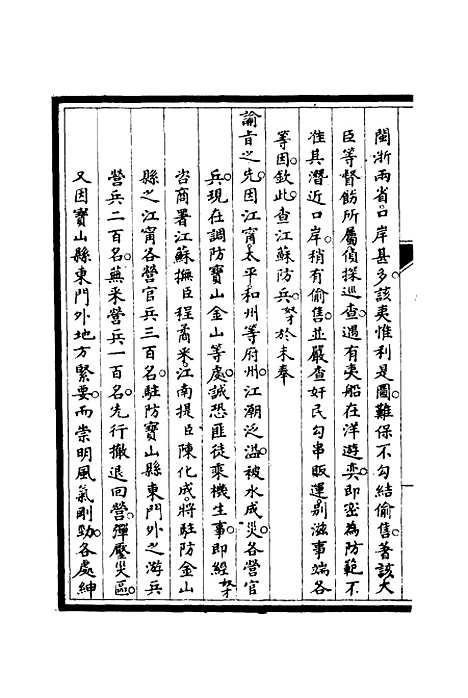 閩浙兩省口岸甚多該夷惟利是圖難保不勾結偷售著該大
臣等督飭所屬偵探巡查遇有夷船在洋遊奕即密為防範不
准其潛近口岸稍有偷售並嚴查奸民勾串販運別滋事端各
等因欽此查江蘇防兵奴才於未奉
諭旨之先因江甯太平和州等府州江潮泛溢被水成災各營官
兵現在調防寶山金山等處誠恐匪徒乘機生事即經奴才
咨商署江蘇撫臣程矞采江南提臣陳化成將駐防金山
縣之江甯各營官兵三百名駐防寶山縣東門外之游兵
營兵二百名蕪采營兵一百名先行撤退回營彈壓災區
又因寶山縣東門外地方緊要而崇明風氣剛勁各處紳